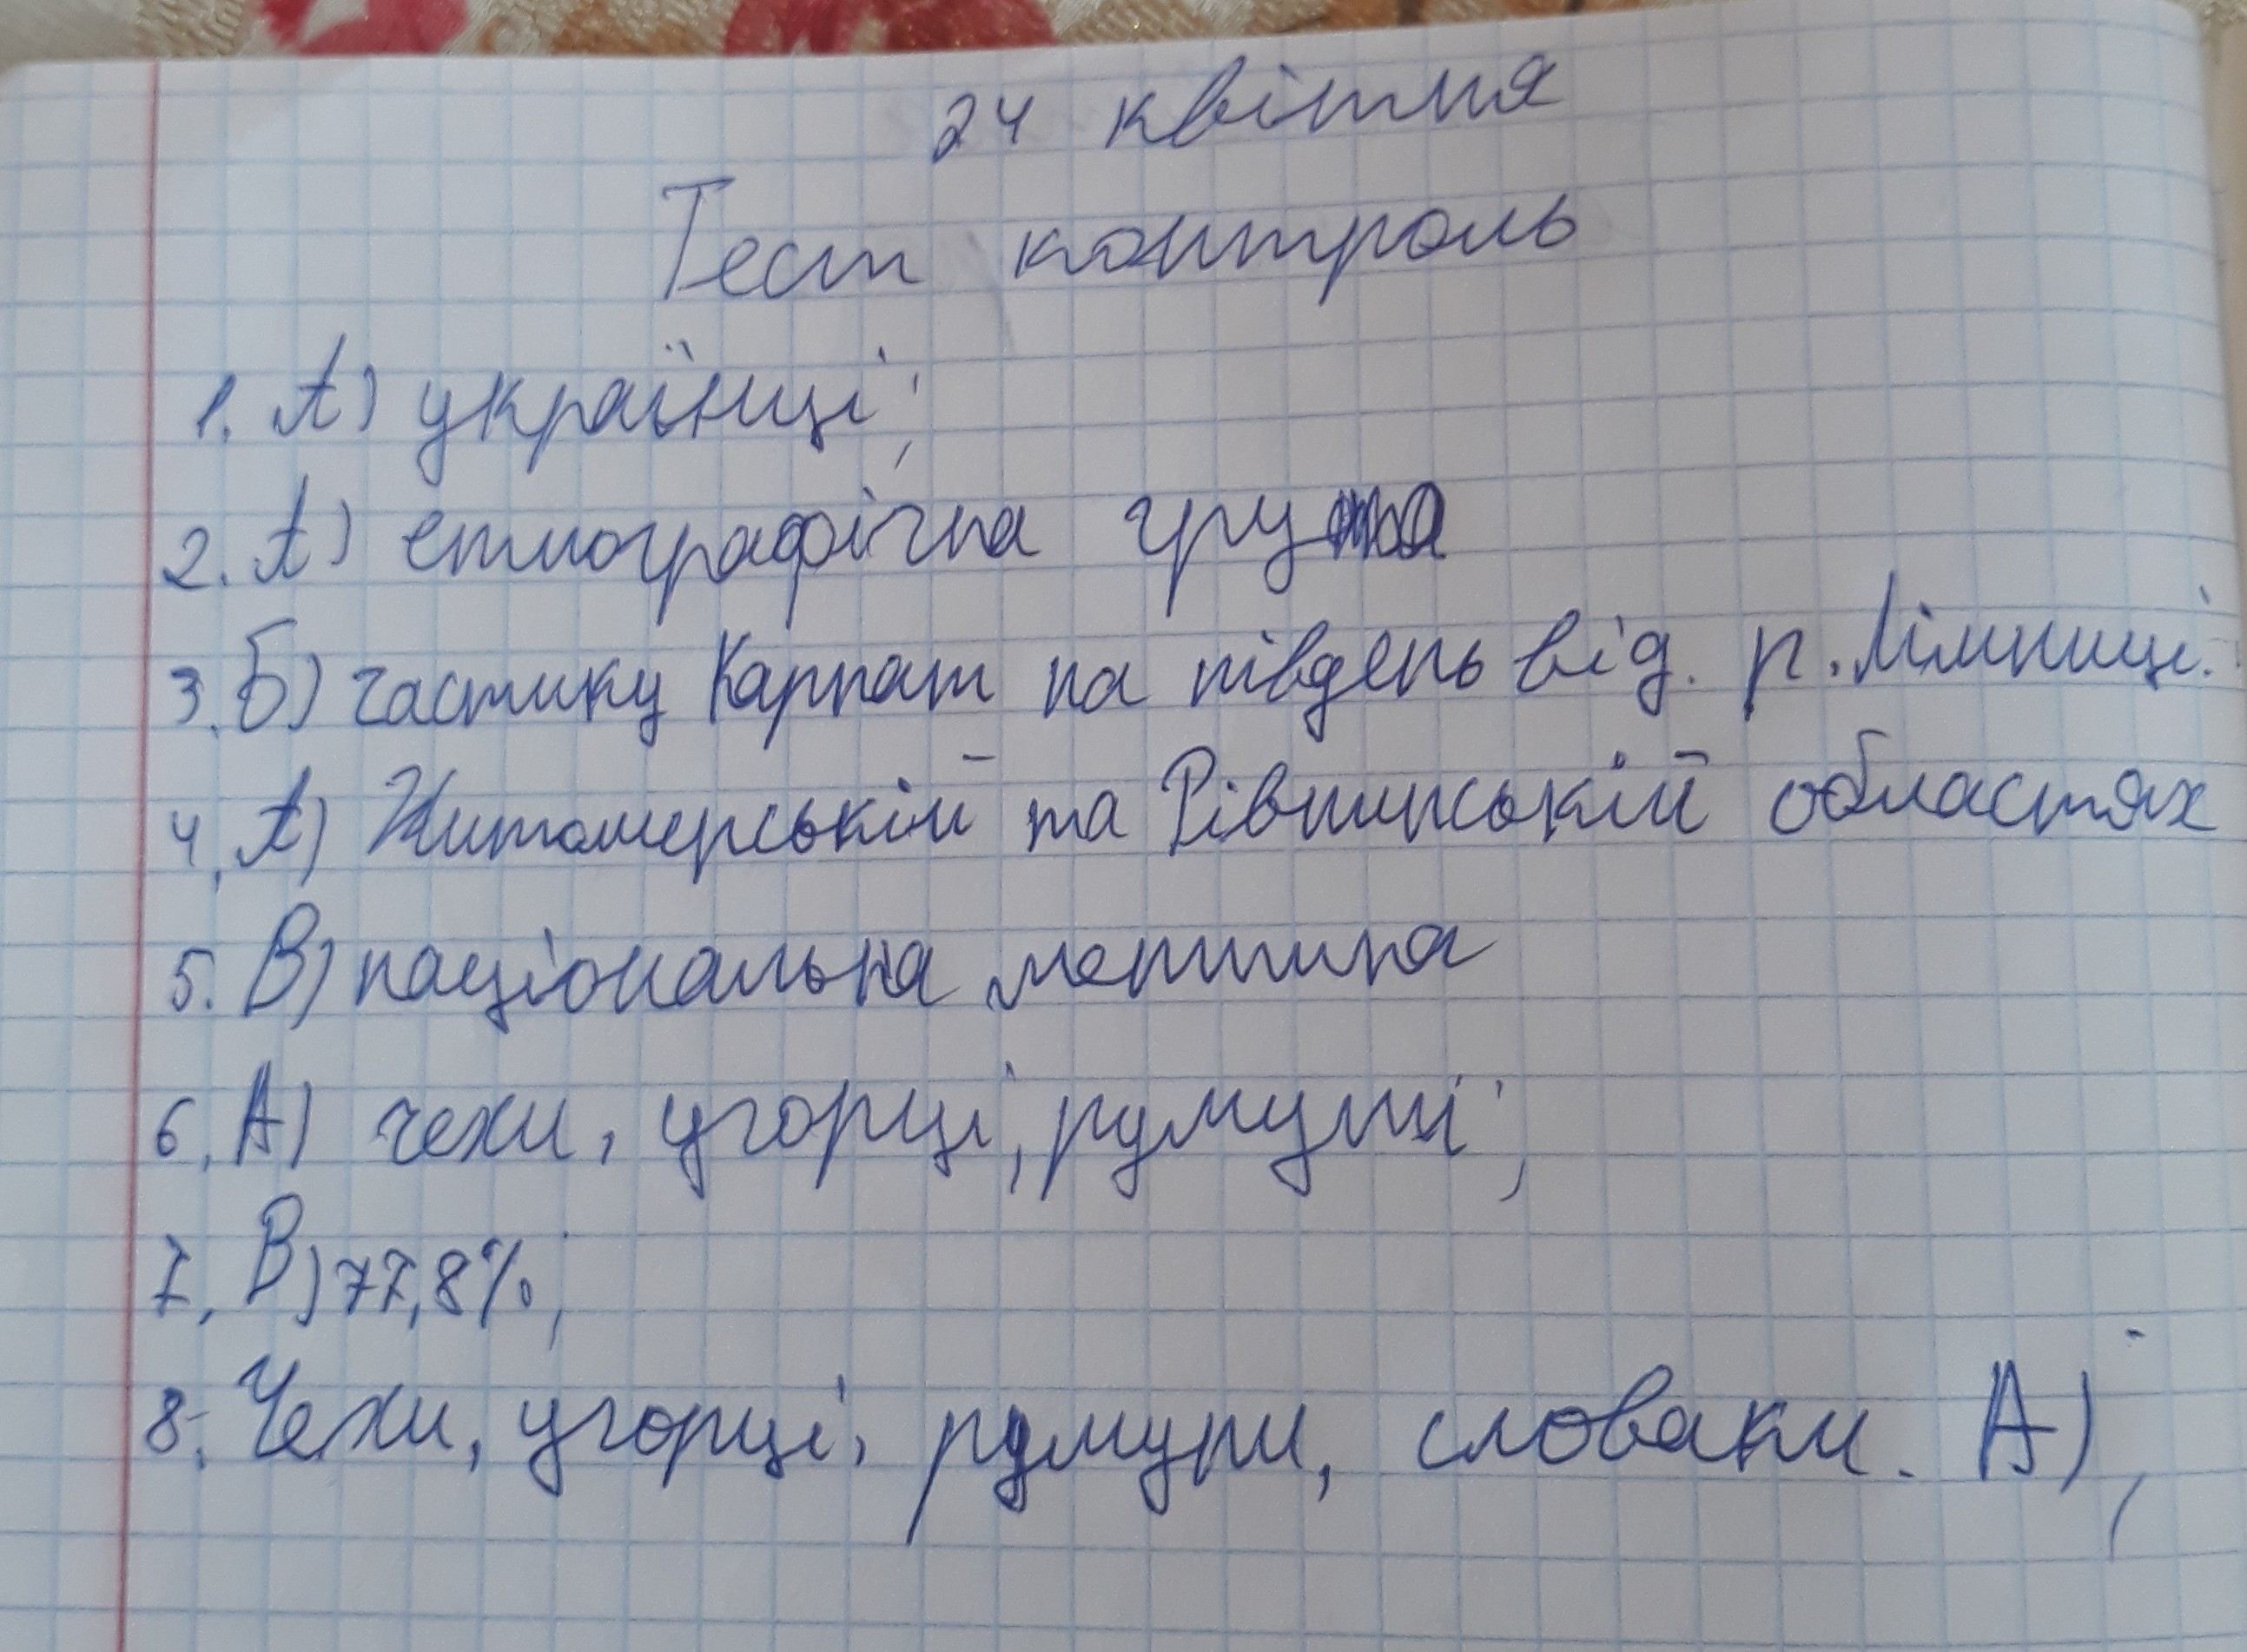 24 квітня
Тест контроль
1. А) українці;
2. А) етнографічна група
3. Б) частину Карпат на південь від. р. Лімниці.
4. А) Житомерській та Рівненській областях
5. В) національна меншина
6. А) чехи, угорці, румуни;
7. В) 77,8%;
8. Чехи, угорці, румуни, словаки. А);